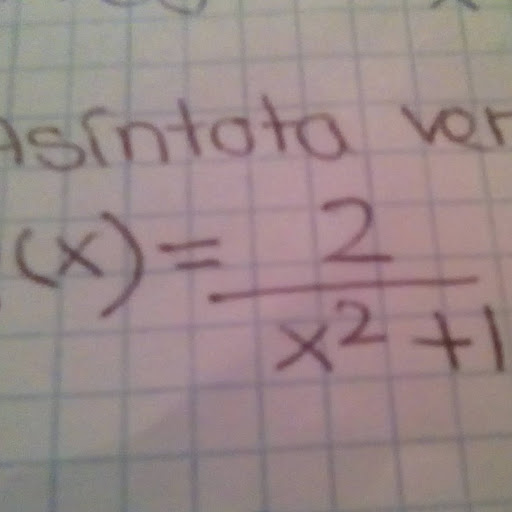 Asíntota ver
(x) = 2
x² + 1